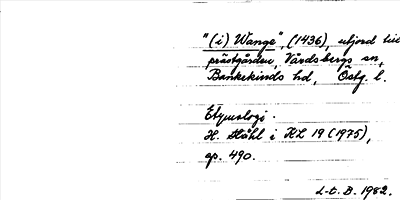 "(i) Wange", (1436), utjord till
prästgården, Vårdsbergs sn,
Bankekinds hd, Östg. l.
Etymologi.
H. Ståhl i HL 19 (1975),
sp. 490.
L-t. B. 1982.